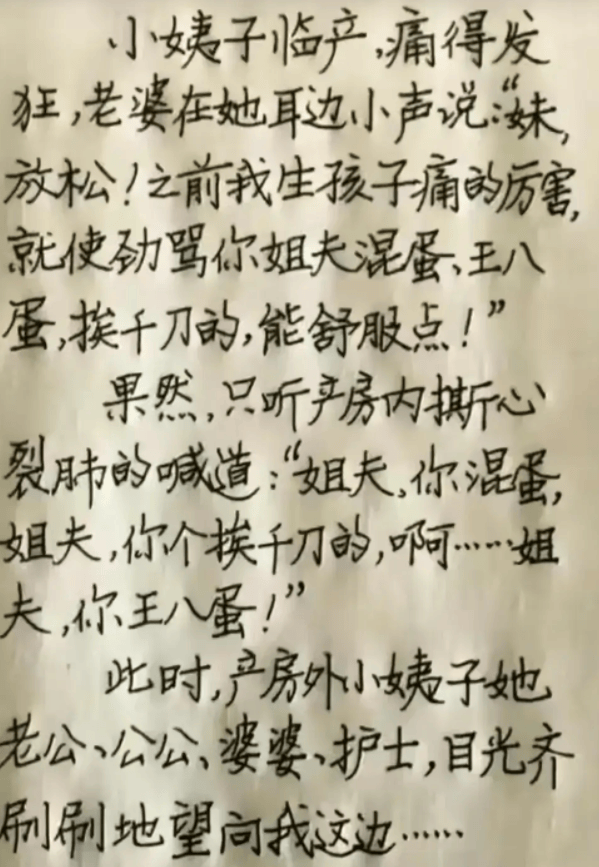 小姨子临产,痛得发
狂,老婆在她耳边小声说:“妹,
放松!之前我生孩子痛的厉害,
就使劲骂你姐夫混蛋、王八
蛋,挨千刀的,能舒服点!”
果然,只听产房内撕心
裂肺的喊道:“姐夫,你混蛋,
姐夫,你个挨千刀的,啊……姐
夫,你王八蛋!”
此时,产房外小姨子她
老公、公公、婆婆、护士,目光齐
刷刷地望向我这边……